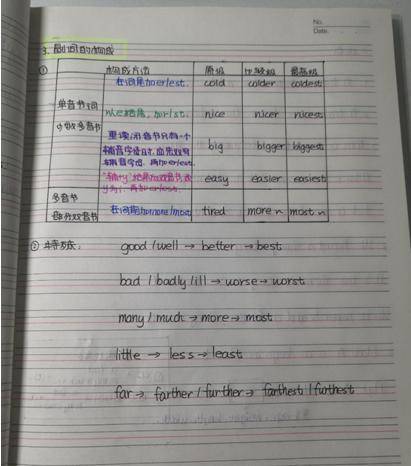 No.
Date.
3. 副词的构成
① 构成方法 原级 比较级 最高级
单音节词 少数多音节
在词尾加er/est. cold colder coldest
以e结尾, 加r/st. nice nicer nicest
重读闭音节只有一个
辅音字母时, 应先双写
辅音字母, 再加er/est. big bigger biggest
"辅+y"结尾的双音节, 改
y为i, 再加er/est. easy easier easiest
多音节
部分双音节 在词前加more/most tired more ~ most ~
② 特殊: good / well → better → best
bad / badly / ill → worse → worst
many / much → more → most
little → less → least
far → farther / further → farthest / furthest